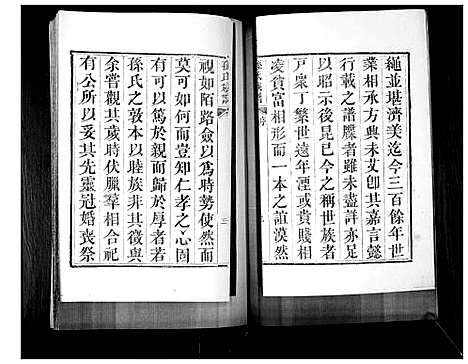 繩並堪濟美迄今三百餘年世
業相承方興未艾卽其嘉言懿
行載之譜牒者雖未盡詳亦足
以昭示後昆然今之稱世族者
戸衆丁繁世遠年湮或貴賤相
凌貧富相形而一本之誼漠然
孫氏族譜
序
視如陌路僉以爲時勢使然而
莫可如何而豈知仁孝之心固
有可以篤於親而歸於厚者若
孫氏之敦本睦族非其徵與
余嘗觀其歲時伏臘羣相合祀
有公所以妥其先靈冠婚喪祭